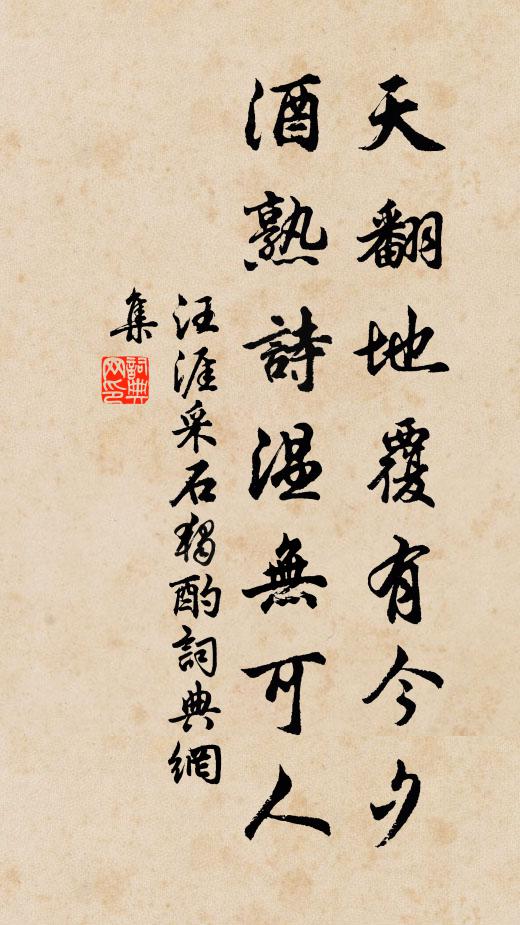 天翻地覆有今夕
酒熟詩温無可人
汪涯采石獨酌詞典網
集
詞典
网印